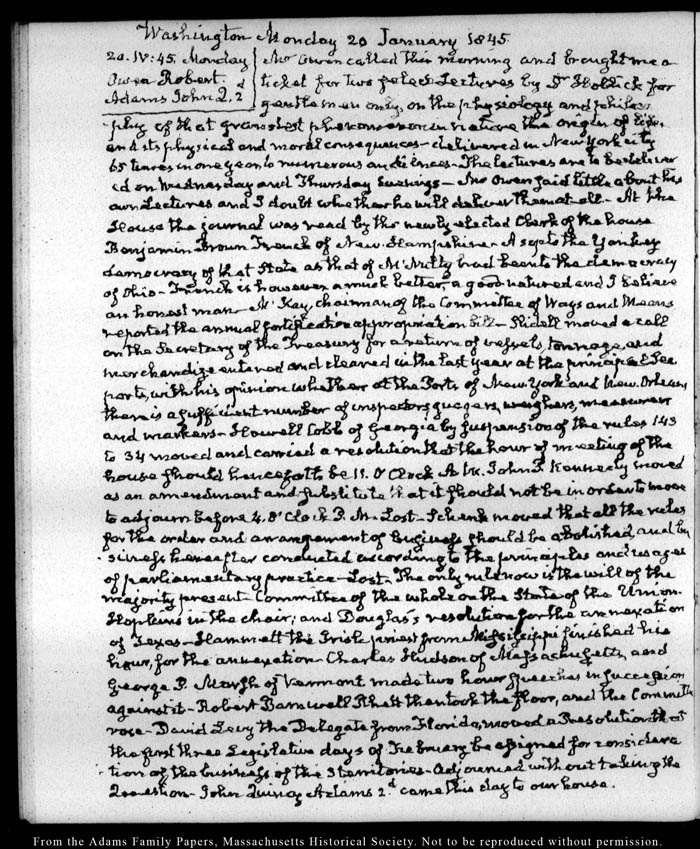 Washington Monday 20 January 1845.
20. IV:45. Monday
Owen Robert.
Adams John Q. 2d
Mr Owen called this morning and brought me a
ticket for two select Lectures by Dr Hollick for
gentlemen only, on the physiology and philoso-
phy of that grandest phenomenon in nature the origin of life,
and its physical and moral consequences- delivered in New York city
65 times in one year to numerous audiences- The lectures are to be deliver
ed on Wednesday and Thursday Evenings- Mr Owen said little about his
own Lectures and I doubt whether he will deliver them at all- At the
House the journal was read by the newly elected Clerk of the house
Benjamin Brown French of New-Hampshire- A sop to the Yankey
democracy of that State as that of McNulty had been to the democracy
of Ohio- French is however a much better, a good natured and I believe
an honest man- McKay, chairman of the Committee of Ways and Means
reported the annual fortification appropriation bill- Slidell moved a call
on the Secretary of the Treasury for a return of vessels tonnage, and
merchandize entered and cleared in the last year at the principal Sea
ports, with his opinion whether at the Ports of New York and New Orleans,
there is a sufficient number of inspectors, guagers, weighers, measurers
and markers- Howell Cobb of Georgia by suspension of the rules 143
to 34 moved and carried a resolution that the hour of meeting of the
house should henceforth be 11. O'Clock A.M. John P. Kennedy moved
as an amendment and substitute that it should not be in order to move
to adjourn before 4. O'Clock P.M- Lost- Schenk moved that all the rules
for the order and arrangement of business should be abolished, and bu
siness hereafter conducted according to the principles and usages
of parliamentary practice- Lost. The only rule now is the will of the
majority present. Committee of the whole on the State of the Union-
Hopkins in the chair; and Douglas's resolution for the annexation
of Texas- Hammett the Irish priest from Mississippi finished his
hour, for the annexation- Charles Hudson of Massachusetts, and
George P. Marsh of Vermont made two hour speeches in succession
against it- Robert Barnwell Rhett then took the floor, and the Committee
rose- David Levy the Delegate from Florida, moved a Resolution that
the first three Legislative days of February be assigned for considera
tion of the business of the Territories- Adjourned without taking the
Question- John Quincy Adams 2d came this day to our house.
From the Adams Family Papers, Massachusetts Historical Society. Not to be reproduced without permission.